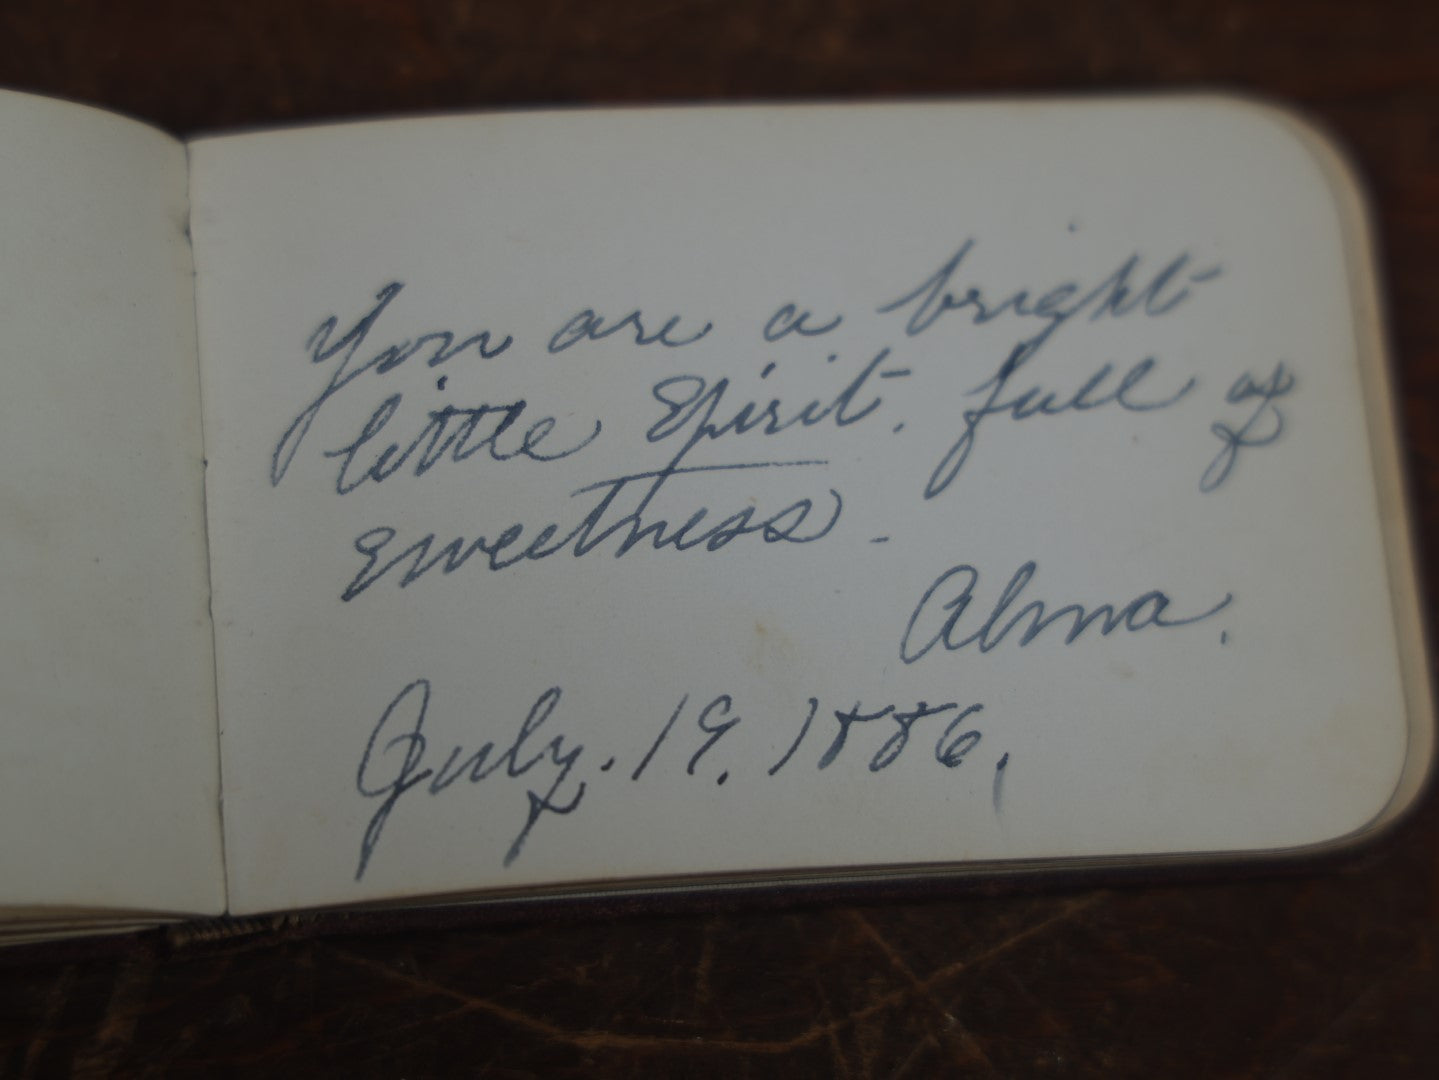 You are a bright
little Spirit. full of
sweetness.
Alma.
July. 19. 1886.